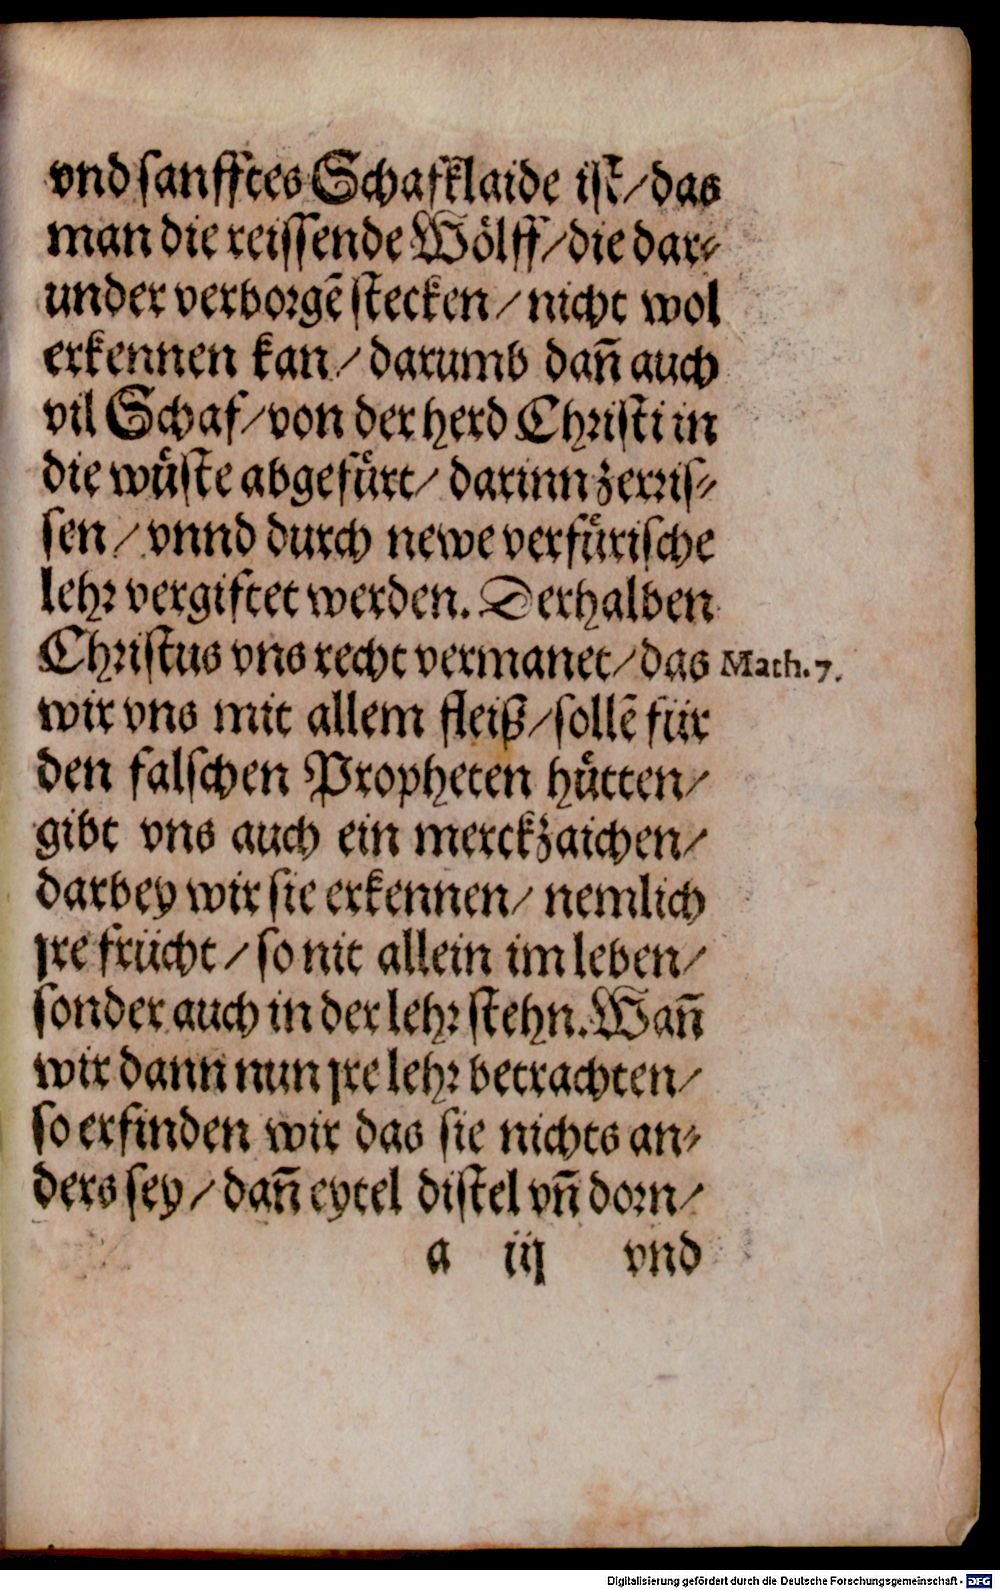 vnd sanfftes Schafklaide ist/das
man die reissende Wölff/die dar-
under verborgē stecken/nicht wol
erkennen kan/darumb dañ auch
vil Schaf/von der herd Christi in
die wuͤste abgefuͤrt/darinn zerris-
sen/vnnd durch newe verfuͤrische
lehr vergiftet werden. Derhalben
Christus vns recht vermanet/das Math.7.
wir vns mit allem fleiß/sollē für
den falschen Propheten huͤtten/
gibt vns auch ein merckzaichen/
darbey wir sie erkennen/nemlich
jre frücht/so nit allein im leben/
sonder auch in der lehr stehn. Wañ
wir dann nun jre lehr betrachten/
so erfinden wir das sie nichts an-
ders sey/dañ eytel distel vñ dorn/
a iij vnd
Digitalisierung gefördert durch die Deutsche Forschungsgemeinschaft - DFG